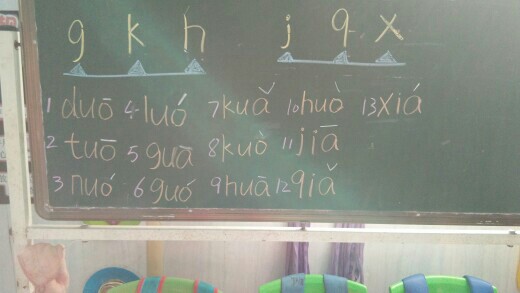 g k h j q x
1 duō 4 luó 7 kuǎ 10 huò 13 xiá
2 tuō 5 guā 8 kuò 11 jiā
3 nuó 6 guó 9 huā 12 qiǎ